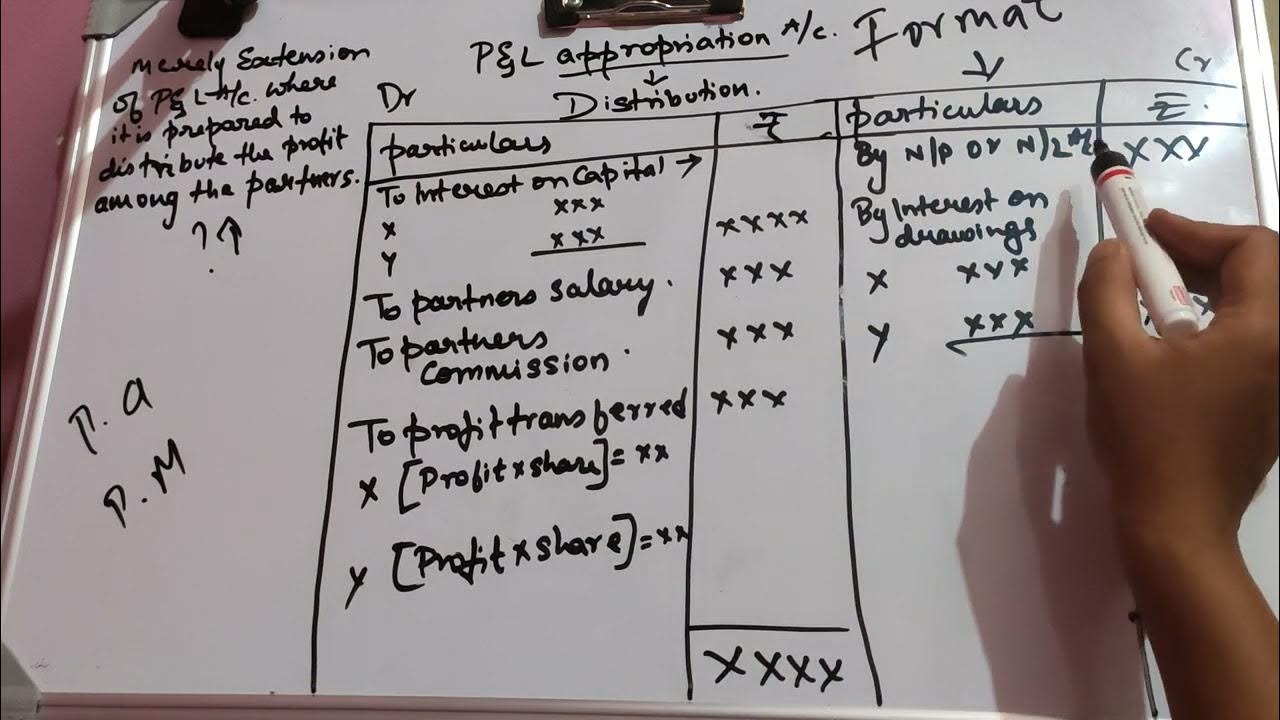 P&L appropriation A/c. Format
↓
Distribution.
merely Extension
of P&L A/c. where
it is prepared to
distribute the profit
among the partners.
? ↑
p.a
p.M
Dr
particulars ₹
To Interest on Capital →
X xxx
Y xxx xxxx
To partners salary. xxx
To partners
Commission. xxx
To profit transferred xxx
X [Profit x share] = xx
Y [Profit x share] = xx
xxxx
Cr
particulars ₹.
By N/P or N/L xxx
By Interest on
drawings
X xxx
Y xxx